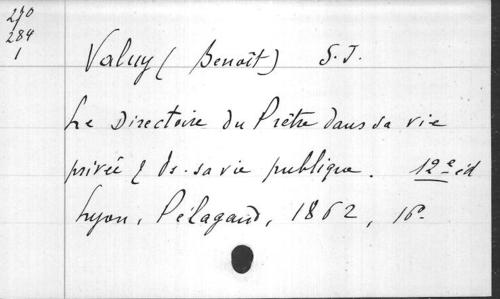 270
284
1
Valuy (Benoît) S.J.
Le Directoire du Prêtre dans sa vie
privée & ds. sa vie publique. 12e éd
Lyon, Pélagaud, 1862, 16°.